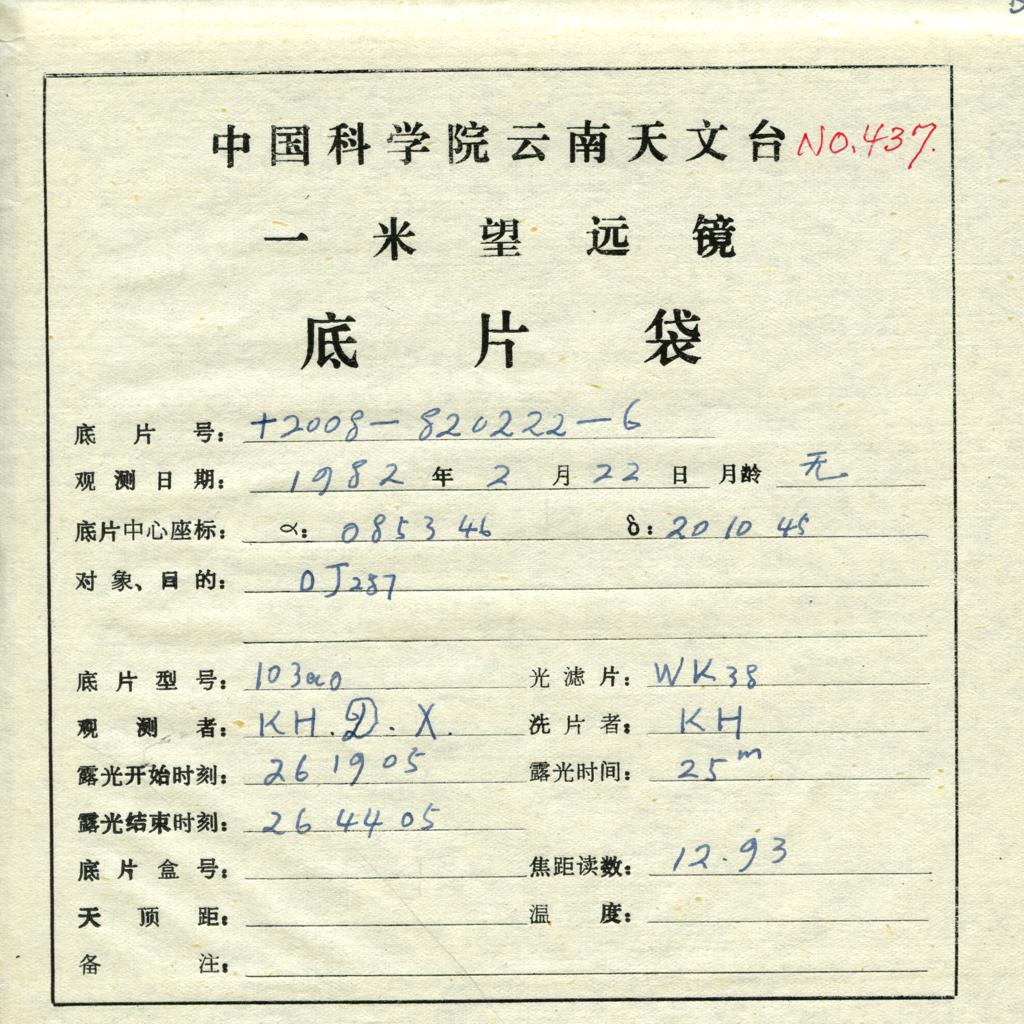 中国科学院云南天文台 NO.437.
一米望远镜
底片袋
底片号: +2008-820222-6
观测日期: 1982年2月22日 月龄 无
底片中心座标: α: 0853 46 δ: 20 10 45
对象、目的: OJ287
底片型号: 103aO 光滤片: WK38
观测者: KH.D.X. 洗片者: KH
露光开始时刻: 26 19 05 露光时间: 25m
露光结束时刻: 26 44 05
底片盒号: 焦距读数: 12.93
天顶距: 温度:
备注: